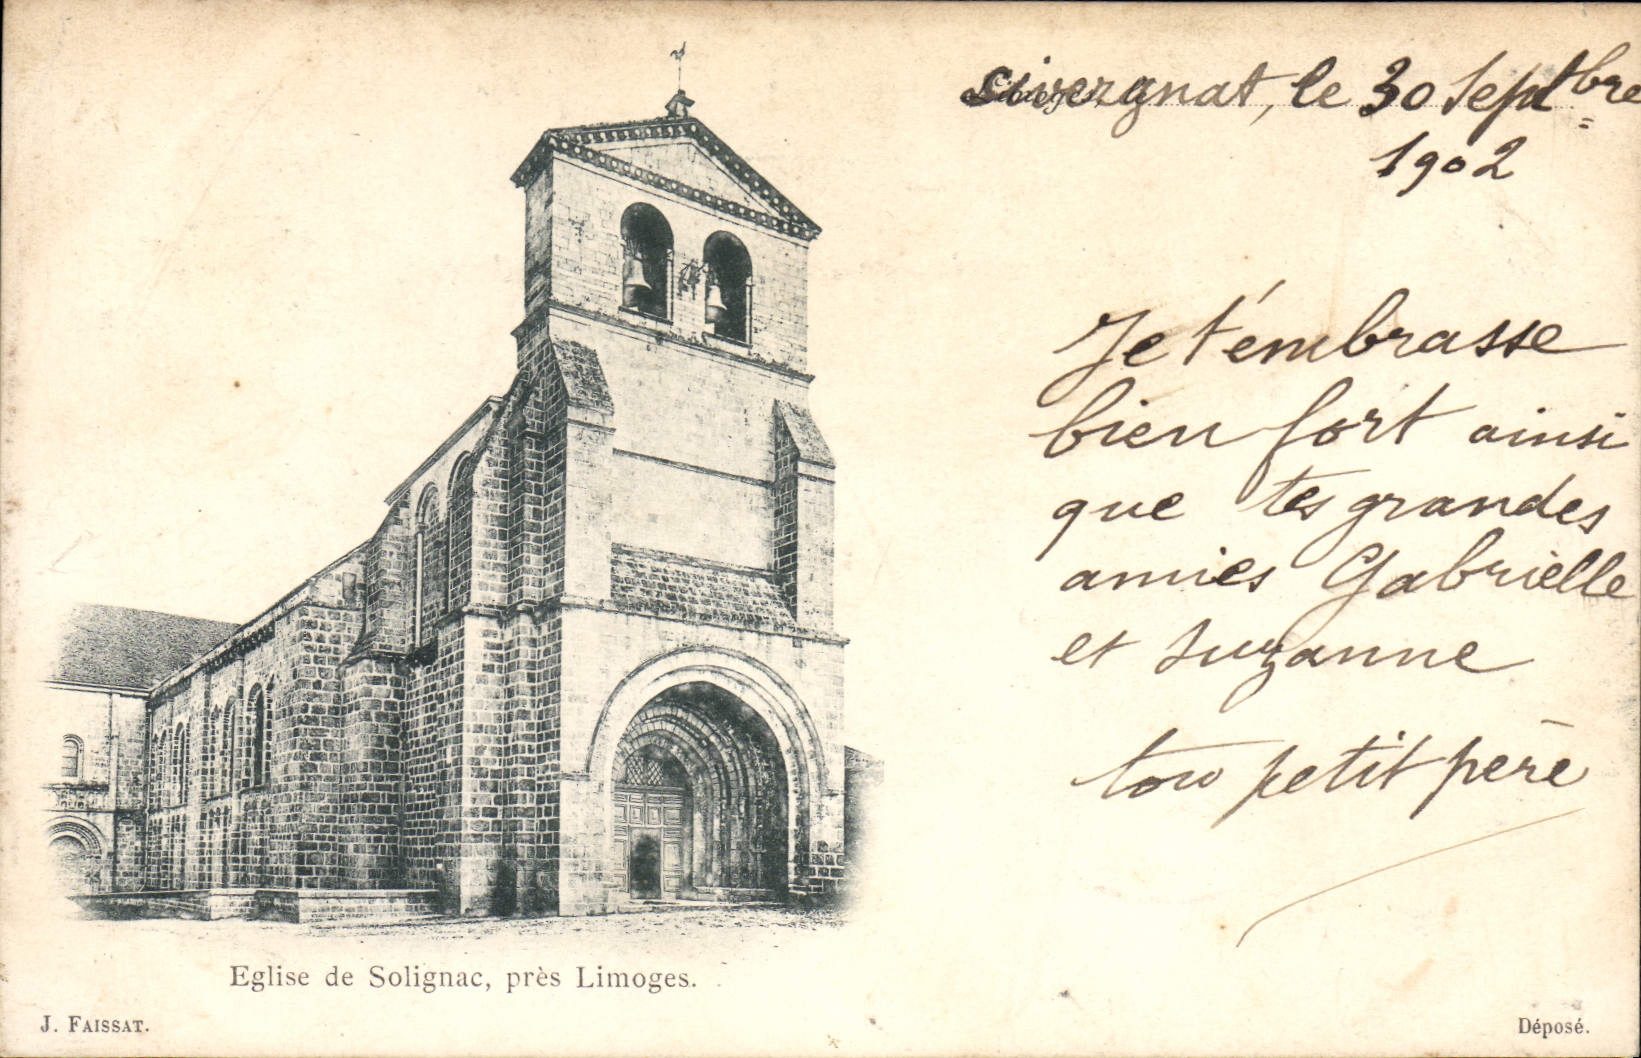 Civergnat, le 30 Septbre
1902
Je t'émbrasse
bien fort ainsi
que tes grandes
amies Gabrièlle
et Suzanne
ton petit père
Eglise de Solignac, près Limoges.
J. FAISSAT.
Déposé.